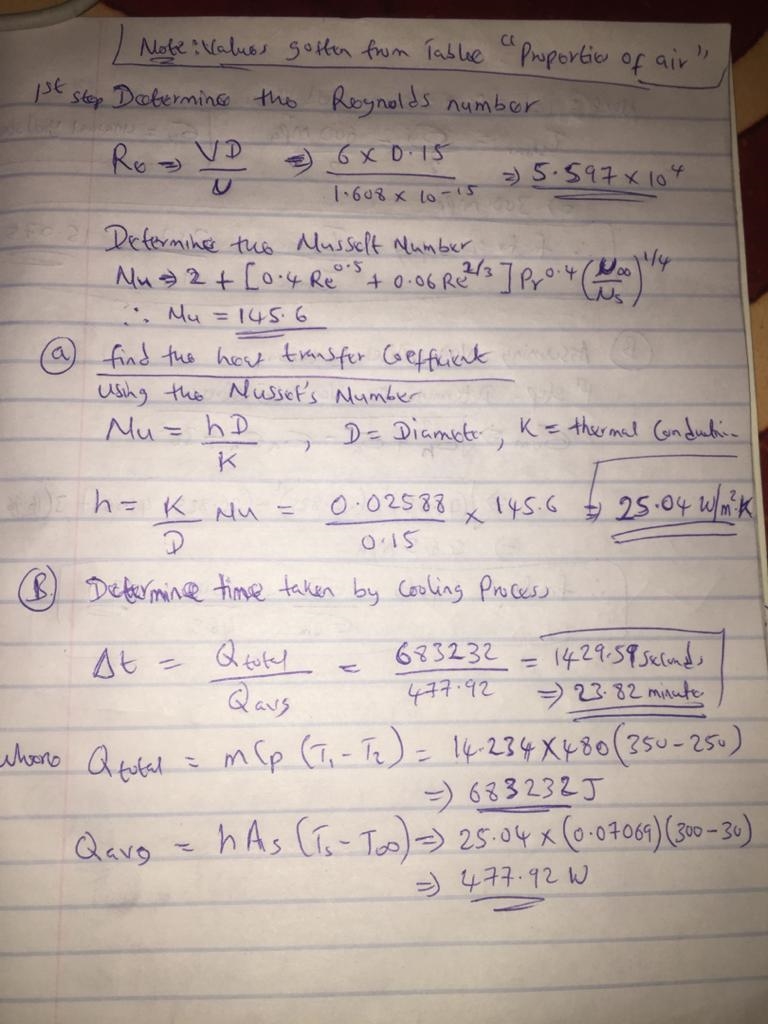 Note: Values gotten from Table "Properties of air"
1st step Determine the Reynolds number
Re => VD/ν => 6 x 0.15 / 1.608 x 10-15 => 5.597 x 10^4
Determine the Nusselt Number
Nu => 2 + [0.4 Re^0.5 + 0.06 Re^2/3] Pr^0.4 (μ∞/μs)^1/4
∴ Nu = 145.6
(a) find the heat transfer Coefficient
using the Nusset's Number
Nu = hD/K , D = Diameter, K = thermal Conducti
h = K/D Nu = 0.02588/0.15 x 145.6 => 25.04 W/m².K
(B.) Determine time taken by Cooling Process
Δt = Qtotal/Qavg = 683232/477.92 = 1429.59 seconds
=> 23.82 minute
where Qtotal = mCp (T1 - T2) = 14.234 x 480 (350 - 250)
=> 683232 J
Qavg = hAs (Ts - T∞) => 25.04 x (0.07069)(300 - 30)
=> 477.92 W